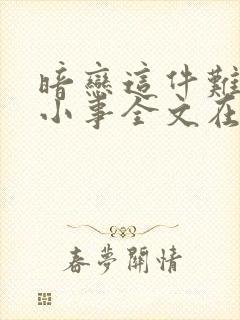 暗戀這件難
小事全文在
春夢關情